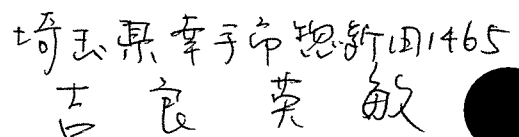 埼玉県幸手市惣新田1465
吉良英敏